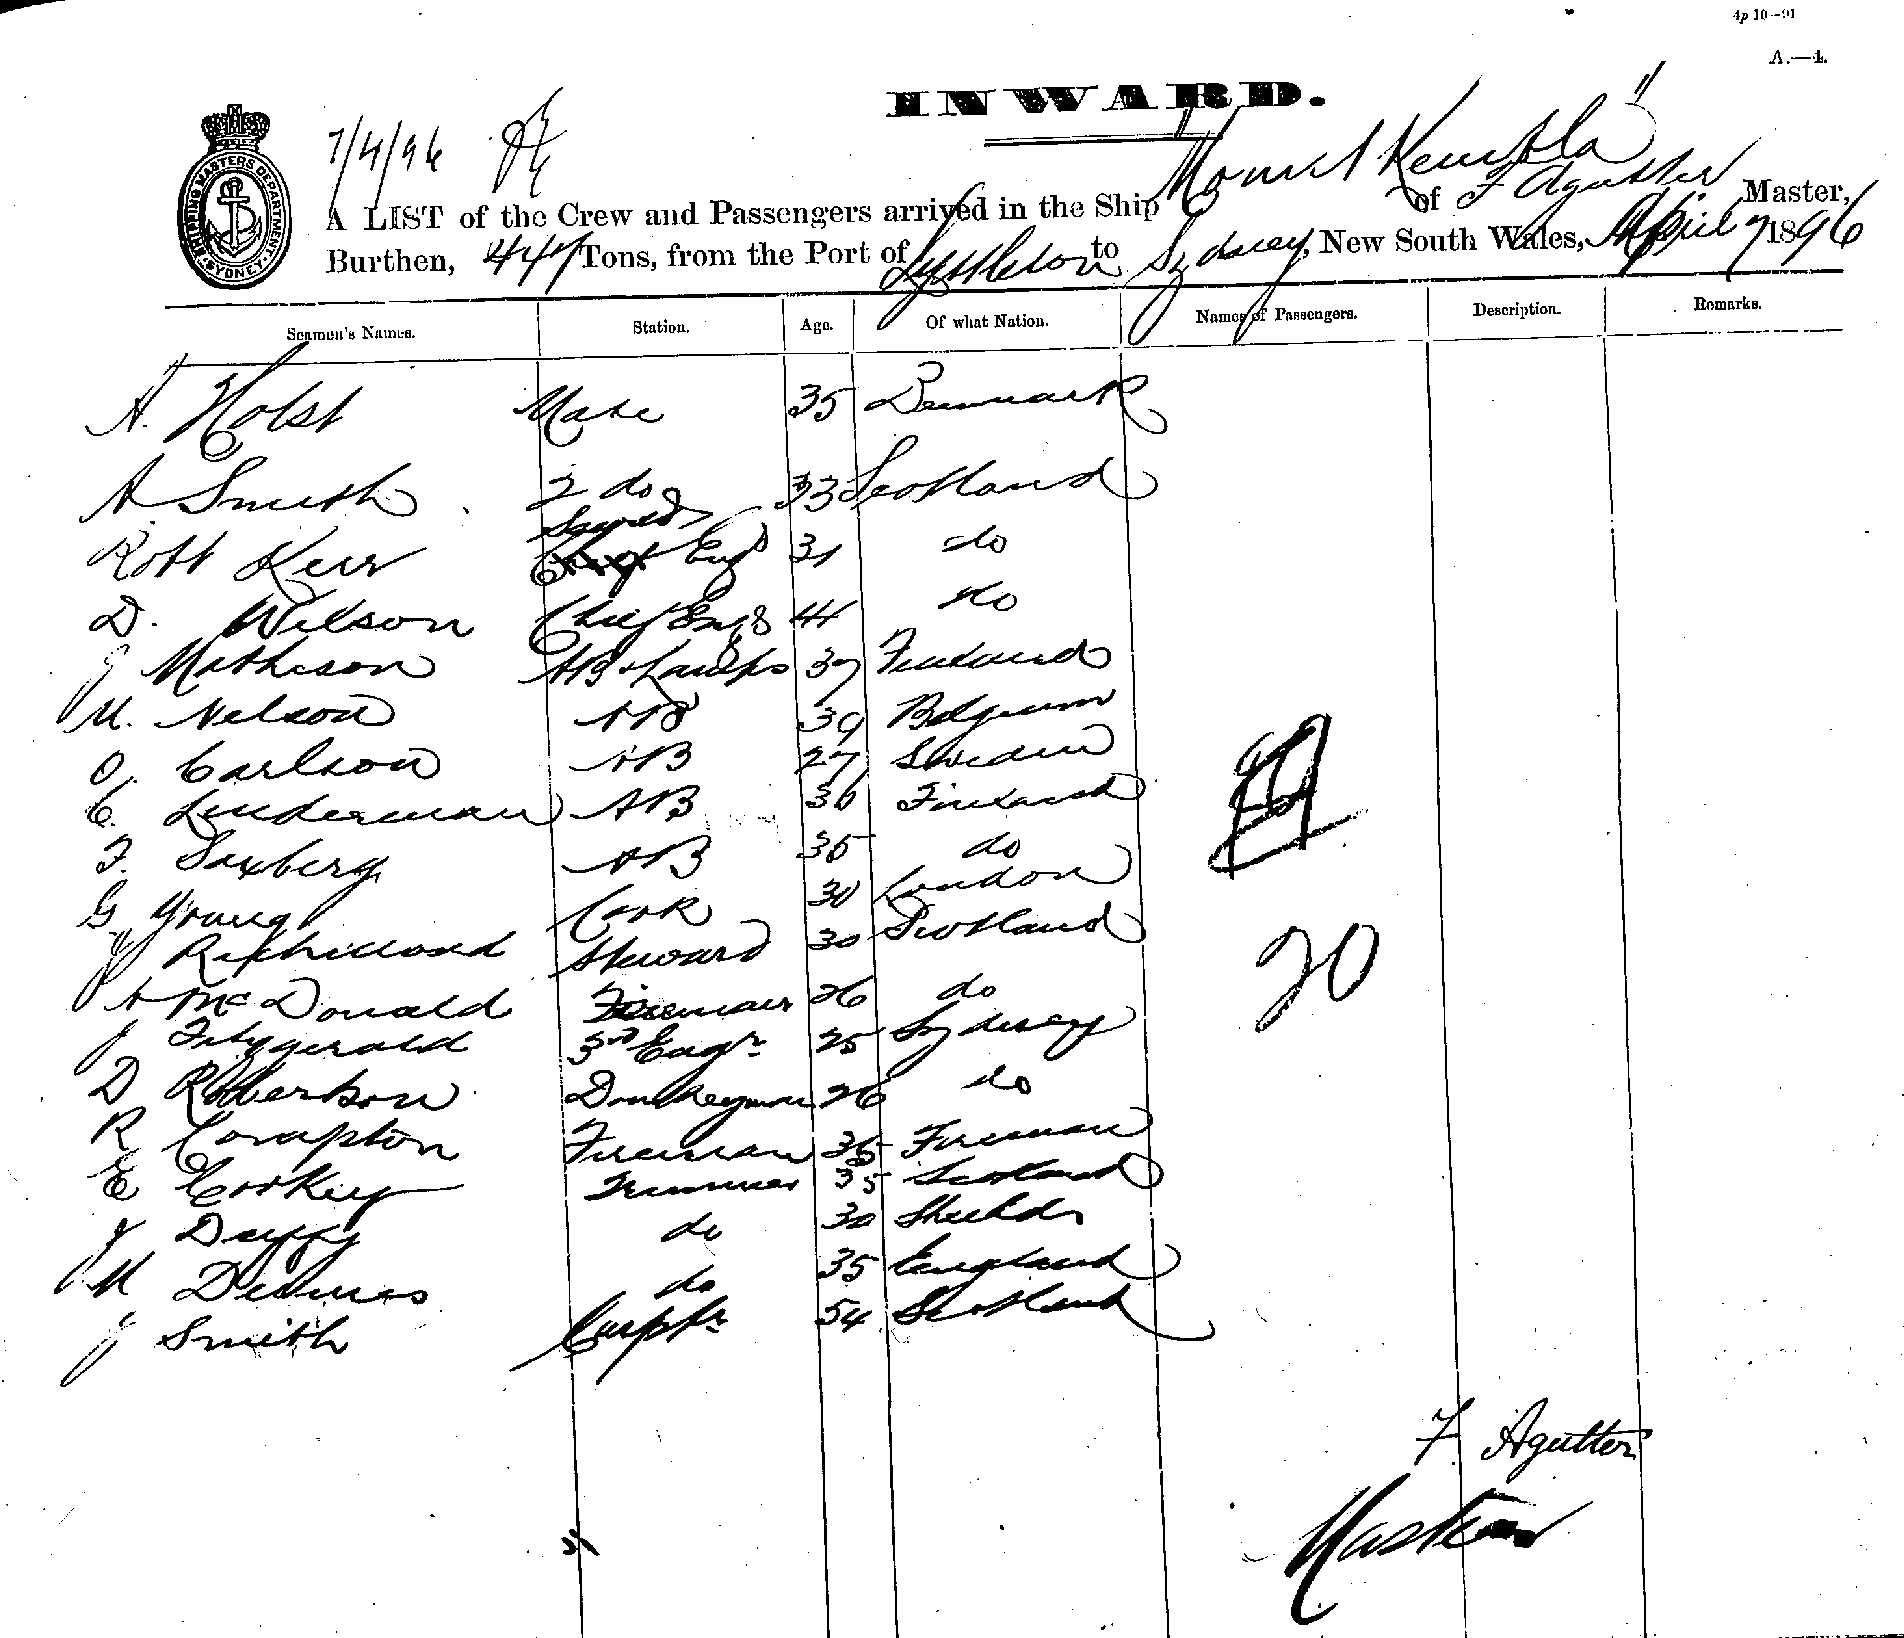 4p 10—91
A.—4.
INWARD.
SHIPPING MASTERS DEPARTMENT SYDNEY
7/4/96
A LIST of the Crew and Passengers arrived in the Ship "Mount Kembla" of F Agutter Master,
Burthen, 447 Tons, from the Port of Lyttleton to Sydney, New South Wales, April 7 1896
Seamen's Names. Station. Age. Of what Nation. Names of Passengers. Description. Remarks.
A. Holst Mate 35 Denmark
A Smith 2 do 33 Scotland
Second
Robt Kerr Chief Engr 31 do
D. Wilson Chief Engr 44 do
J Matheson AB & Lamps 37 Finland
M. Nelson AB 39 Belgium
O. Carlson AB 27 Sweden
C. Linderman AB 30 Finland
F. Saxberg AB 35 do
G Young Cook 30 London
J Richmond Steward 30 Scotland
A McDonald Fireman 26 do
J Fitzgerald 3rd Engr 25 Sydney
D Robertson Donkeyman 26 do
R Compton Fireman 35 Fireman
E Corkey Trimmer 35 Scotland
J Duffy do 30 Shields
M do 35 England
J Smith Carptr 54 Scotland
20
F Agutter
Master